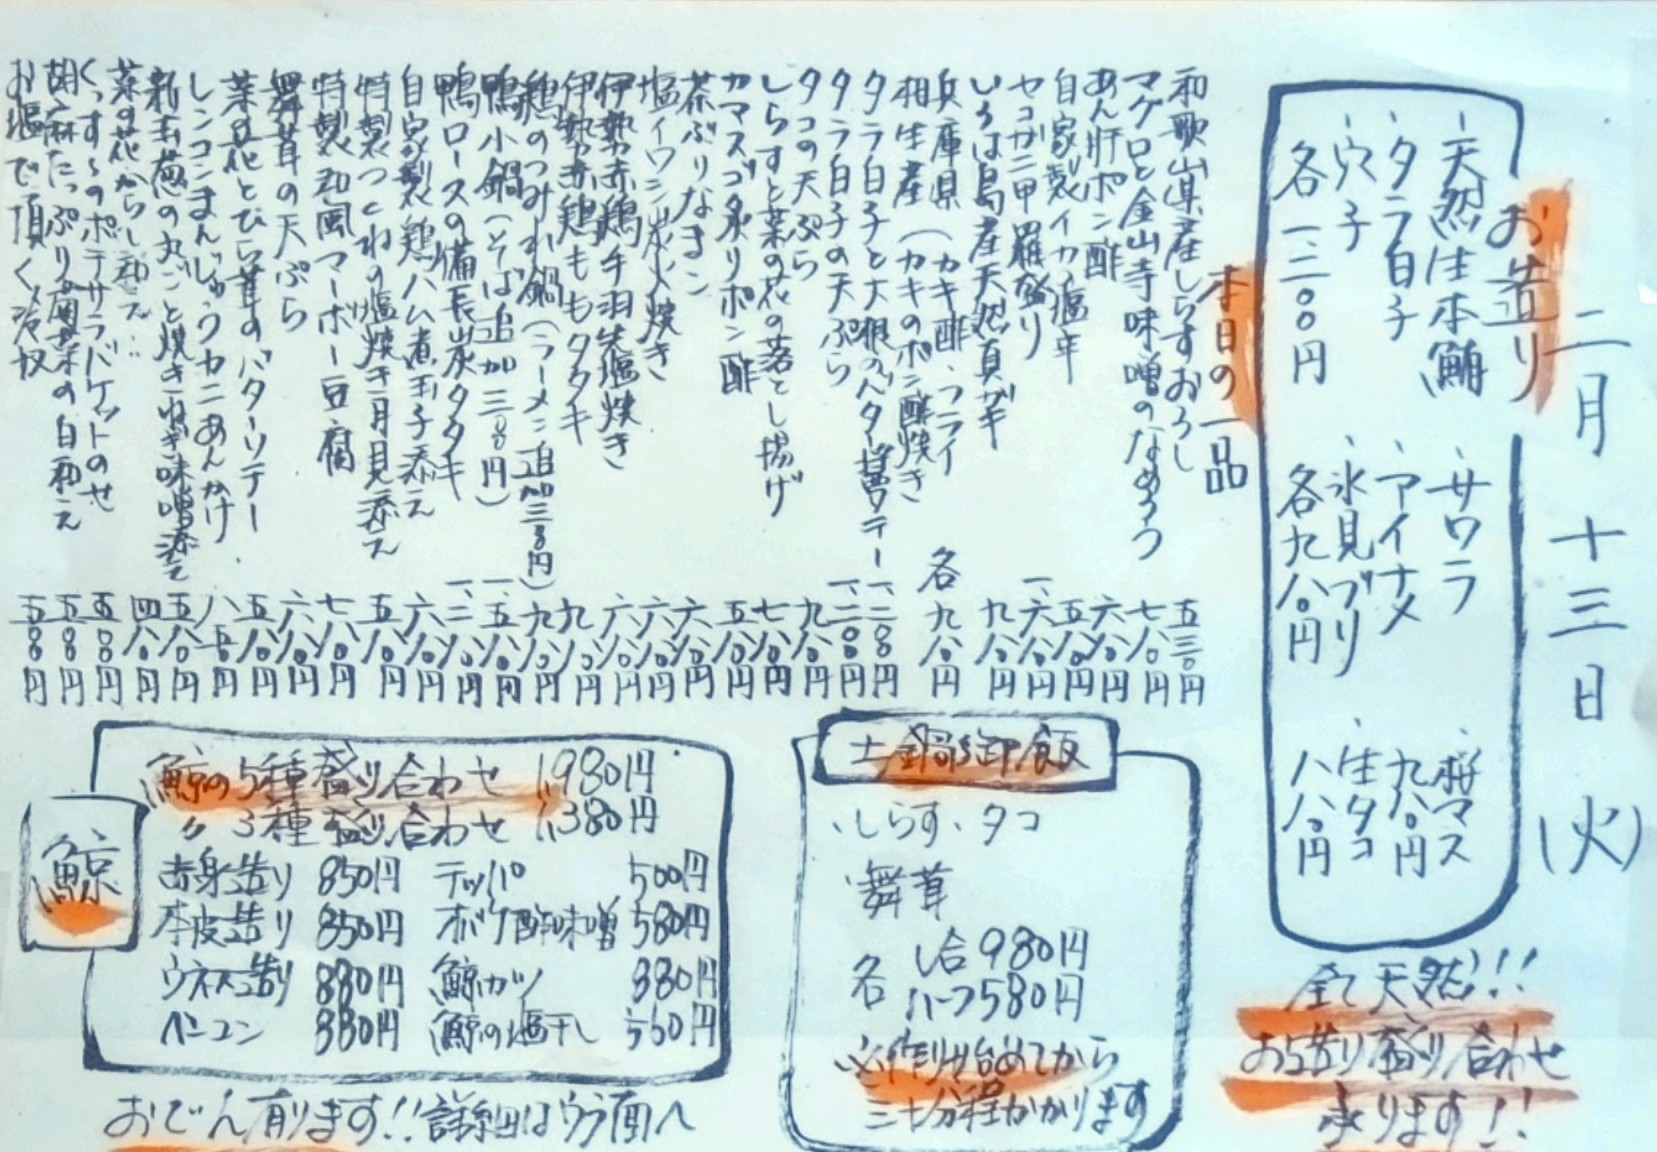 二月十三日(火)
お造り
・天然生本鮪
・タラ白子
・穴子
各一二〇〇円
・サワラ
・アイナメ
・氷見ブリ
各九八〇円
・桜マス
九八〇円
・生タコ
八八〇円
全て天然!!
お造り盛り合わせ
承ります!!
本日の一品
和歌山県産しらすおろし 五三〇円
マグロと金山寺味噌のなめろう 七八〇円
あん肝ポン酢 六八〇円
自家製イカの塩辛 五八〇円
セコガニ甲羅盛り 一、六八〇円
いろは島産天然真ガキ 九八〇円
兵庫県(カキ酢・フライ
相生産(カキのポン酢焼き 各九八〇円
タラ白子と大根のバター醤油ソテー 一、二〇〇円
タラ白子の天ぷら 一、二〇〇円
タコの天ぷら 九八〇円
しらすと菜の花の落とし揚げ 七八〇円
カマスゴ炙りポン酢 五八〇円
茶ぶりなまこ 六八〇円
塩イワシ炭火焼き 六八〇円
伊勢赤鶏手羽先塩焼き 六八〇円
伊勢赤鶏ももタタキ 九八〇円
鶏のつみれ鍋(ラーメン追加三〇〇円) 九八〇円
鴨小鍋(そば追加三〇〇円) 一、五八〇円
鴨ロースの備長炭タタキ 一、二八〇円
自家製鶏ハム煮玉子添え 六八〇円
特製つくねの塩焼き月見添え 五八〇円
特製和風マーボー豆腐 七八〇円
舞茸の天ぷら 六八〇円
菜の花とひら茸のバターソテー 五八〇円
レンコンまんじゅうカニあんかけ 八五〇円
新玉葱の丸ごと焼きねぎ味噌添え 五八〇円
菜の花からし和え 四八〇円
くんすけのポテサラバケットのせ 五〇〇円
胡麻たっぷり 白和え 五〇〇円
お塩で頂く冷奴 五〇〇円
土鍋御飯
・しらす・タコ
・舞茸
各 一合980円
ハーフ580円
必作り始めてから
三十分程かかります
鯨
鯨の5種盛り合わせ 1,980円
〃 3種盛り合わせ 1,380円
赤身造り 850円 テッパ 500円
本皮造り 850円 オバケ酢味噌 580円
ウネス造り 880円 鯨カツ 880円
ベーコン 880円 鯨の塩干し 560円
おでん有ります!!詳細はウラ面へ